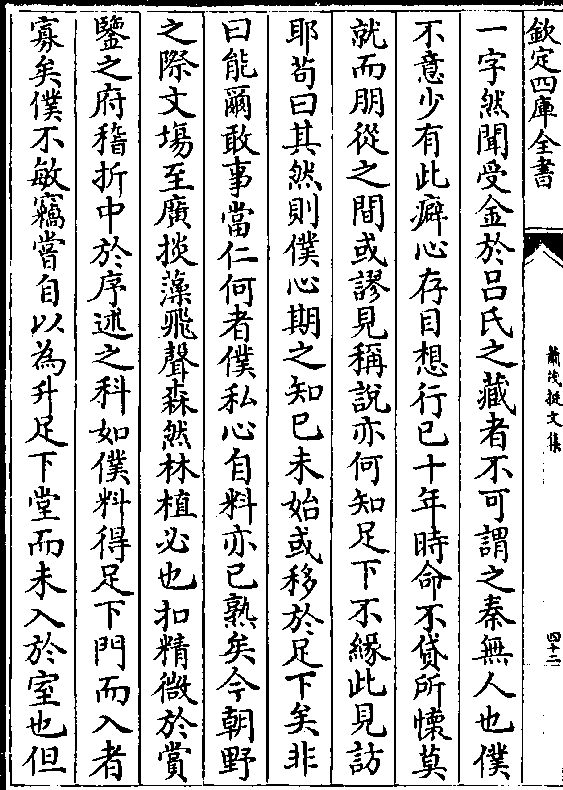 欽定四庫全書
蕭茂挺文集
四十二
一字然聞受金於呂氏之藏者不可謂之秦無人也僕
不意少有此癖心存目想行已十年時命不貸所懐莫
就而朋從之間或謬見稱說亦何知足下不縁此見訪
耶苟曰其然則僕心期之知已未始或移於足下矣非
曰能爾敢事當仁何者僕私心自料亦已熟矣今朝野
之際文塲至廣掞藻飛聲森然林植必也扣精微於賞
鑒之府稽折中於序述之科如僕料得足下門而入者
寡矣僕不敏竊嘗自以為升足下堂而未入於室也但